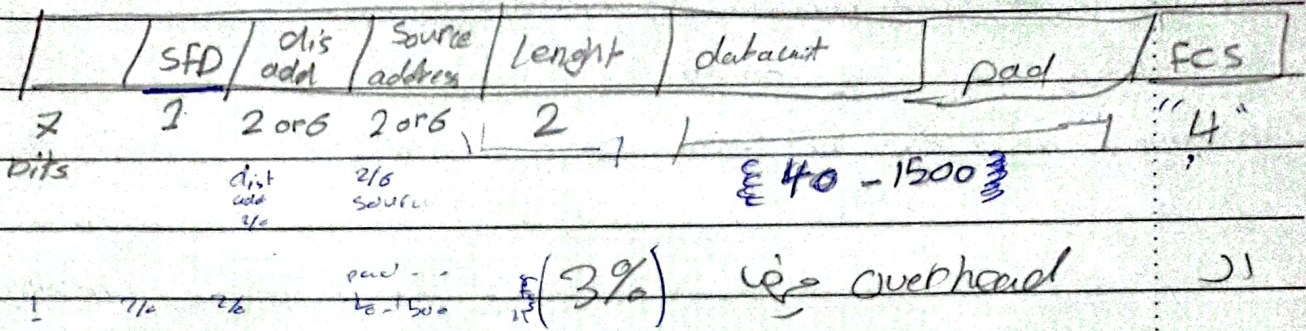 SFD dis add Source address Lenght dataunit pad FCS
7 1 2 or 6 2 or 6 2 "4"
bits dist add 2/6 2/6 source { 40 - 1500 }
pad - - -
(3%) overhead ال